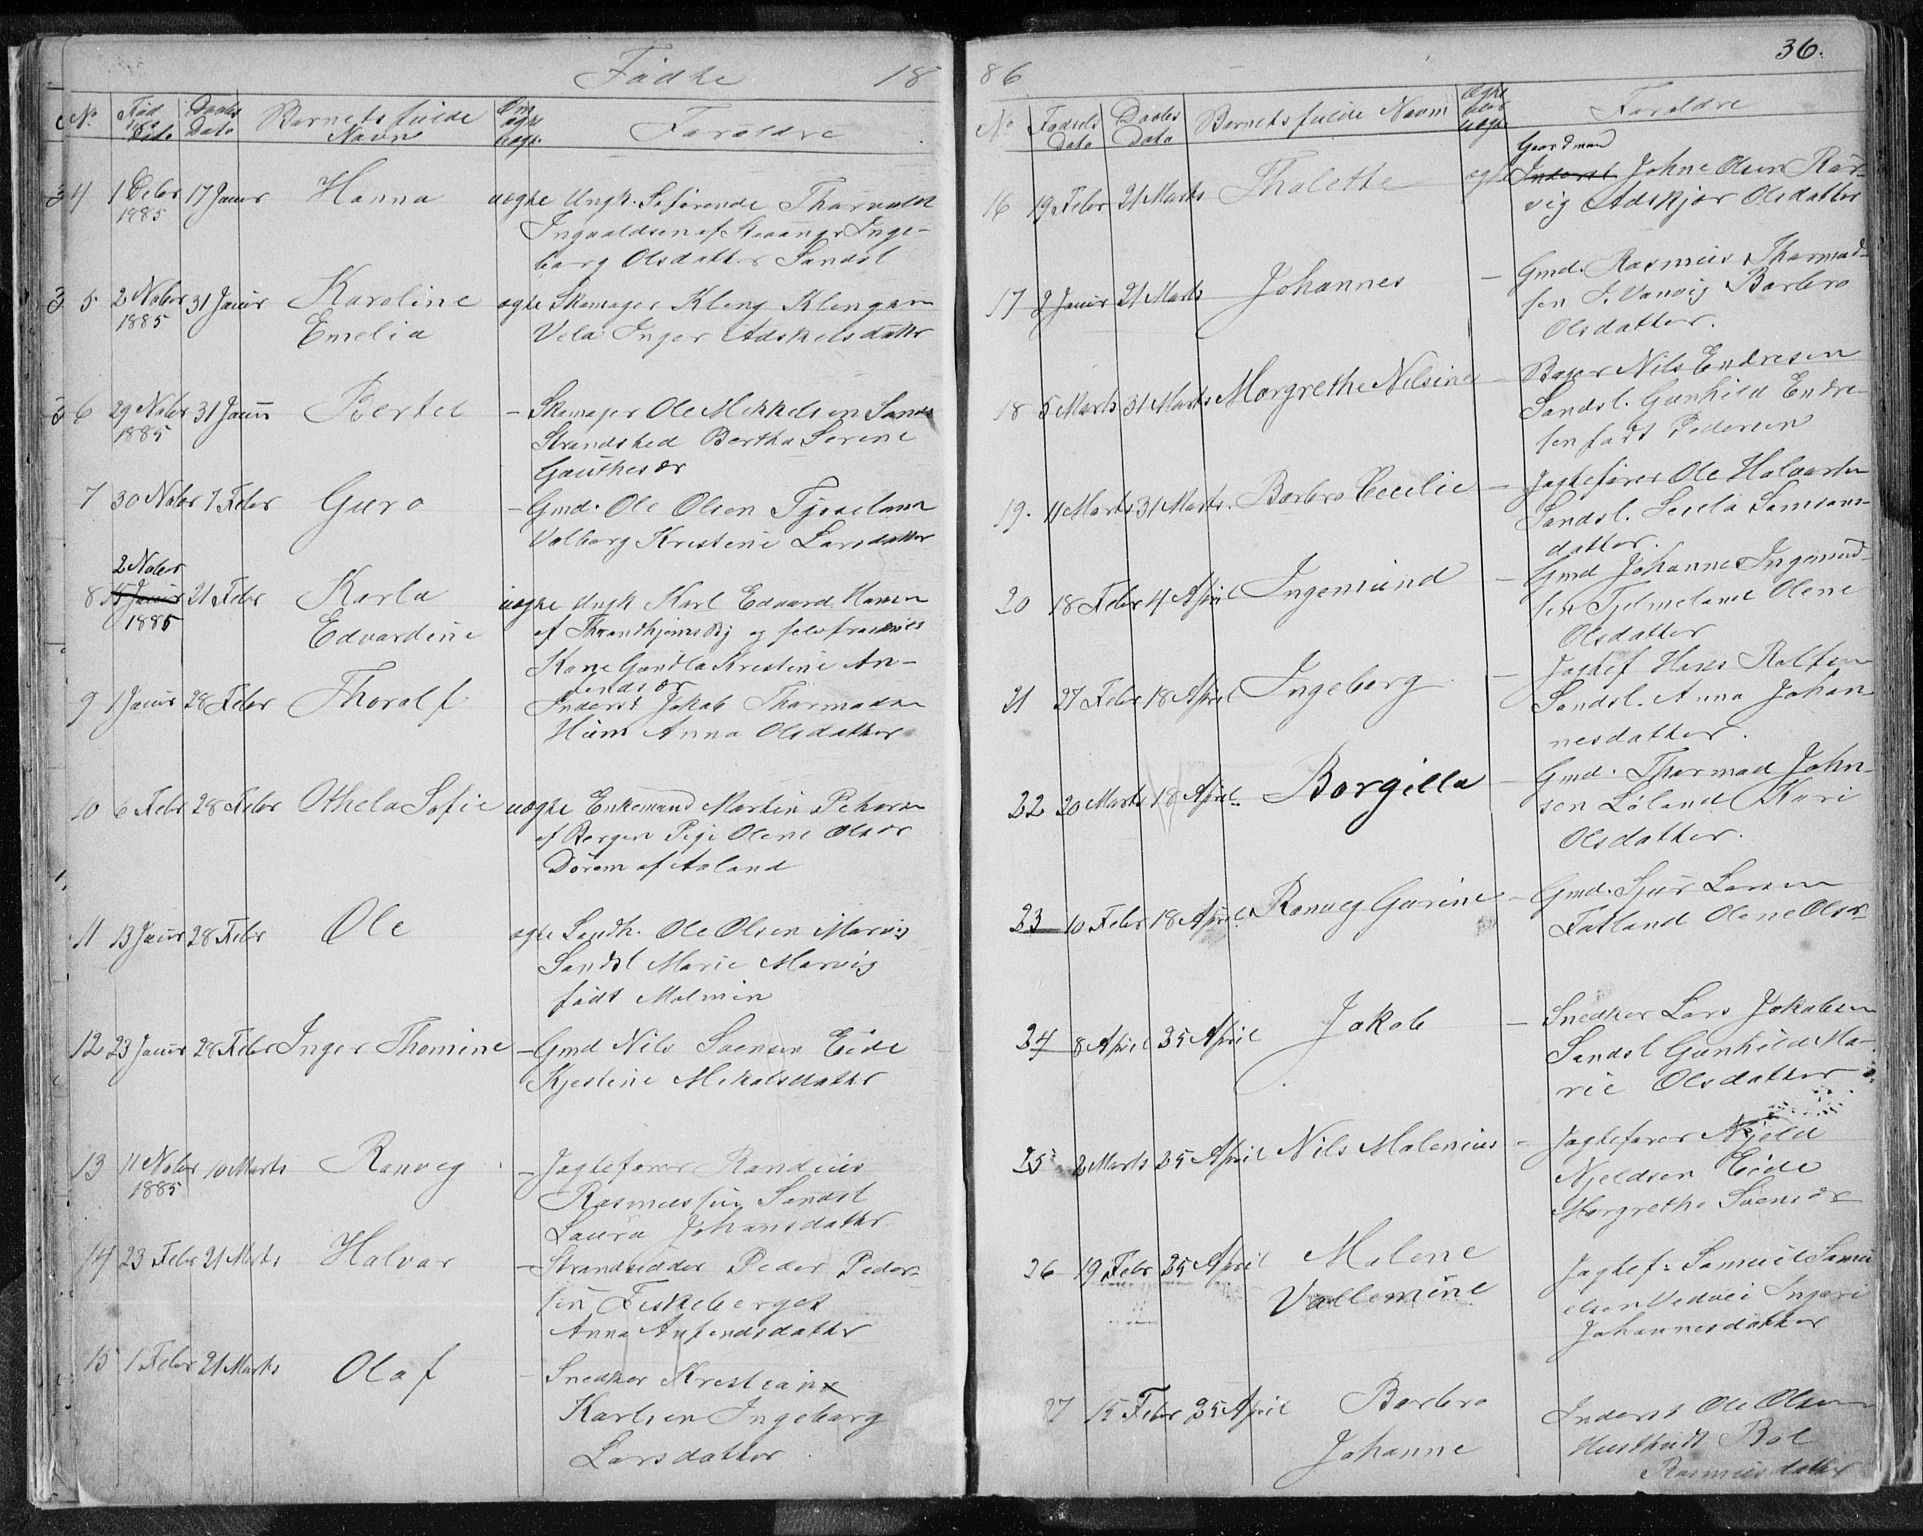 Fødte 18
No Fød sels Dato Daabs Dato Barnets fulde Navn Om ægte uægt. Forældre
4 1 Debr 1885 17 Janur Hanna uægte Ungk. Søfarende Thorvald
Ingvaldsen af Stavangr Inge-
borg Olsdatter Sandsl
5 2 Nobr 1885 31 Janur Karoline Emelia ægte Skomager Kleng Klengsen
Vela Inger Adskelsdattr
6 29 Nobr 1885 31 Janur Bertel – Skomager Ole Mikkelsen Sands
Strandsted Bertha Serine
Gauthesdr
7 30 Nobr 7 Febr Guro – Gmd. Ole Olsen Tjeseland
Valborg Kristine Larsdatter
8 2 Nobr 15 Janur 1885 21 Febr Karla Edvardine uægte Ungk Karl Edvard Hansen
af Throndhjems By og
Kone Gundla Kristine An-
fendsdr
9 1 Janur 28 Febr Thoralf Inderst Jakob Thormodsen
Hiim Anna Olsdatter
10 6 Febr 28 Febr Othela Sofie uægte Enkemand Martin
af Bergen Pige Olene Olsdr
af Aaland
11 13 Janur 28 Febr Ole ægte Landh. Ole Olsen Marvig
Sandsl Marie Marvig
født Malmin
12 23 Janur 28 Febr Inger Thomine – Gmd Nils Svensen Eide
Kjestine Mikalsdattr
13 11 Nobr 1885 10 Marts Ranveg – Jagtefører Randeus
Rasmussen Sandsl
Laura Johansdattr
14 23 Febr 21 Marts Halvar – Strandsidder Peder Peder-
sen Feskeberget
Anna Anfendsdattr
15 1 Febr 21 Marts Olaf – Snedker Krestian
Karlsen Ingeborg
Larsdatter
86
36.
No Fødsels Dato Daabs Dato Barnets fulde Navn Ægte eller uægte Forældre
Gaardmand
16 19 Febr 21 Marts Thalette ægte Inderst Johne Olsen Rør-
vig Adskjer Olsdatter
17 2 Januar 21 Marts Johannes – Gmd. Rasmus Thormod-
sen S. Vanvig Barbro
Olsdatter.
18 5 Marts 31 Marts Margrethe Nelsine – Bager Nils Endresen
Sandsl. Gunhild Endre-
sen født Pedersen
19. 11 Marts 31 Marts. Barbro Cecilie – Jagtefører Ole Halvorsen
Sandsl. Sesela Samsons-
datter.
20 18 Febr 4 April Ingemund – Gmd Johanne Ingemund-
sen Tjelmeland Olene
Olsdatter
21 27 Febr 18 April Ingeborg – Jagtef Hans Rolfsen
Sandsl. Anna Johan-
nesdatter.
22 20 Marts 18 April. Borgilla – Gmd. Thormod John-
sen Løland Kari
Olsdatter.
23 10 Febr 18 April. Ranveg Gurine – Gmd. Sjur Larsen
Fatland Olene Olsdr
24 8 April 25 April Jakob – Snedker Lars Jokabsen
Sandsl Gunhild Ma-
rie Olsdatter
25 2 Marts 25 April Nils Malenius – Jagtefører Njeld
Njeldsen Eide
Margrethe Svensdr
26 19 Febr 25 April Malene Vallemine Jagtef. Samuel Samu
elsen Vedvei Ingeri
Johannesdatter
27 15 Febr 25 April Barbro Johanne Inderst Ole Olsen
Hustveit Bol
Rasmusdatter